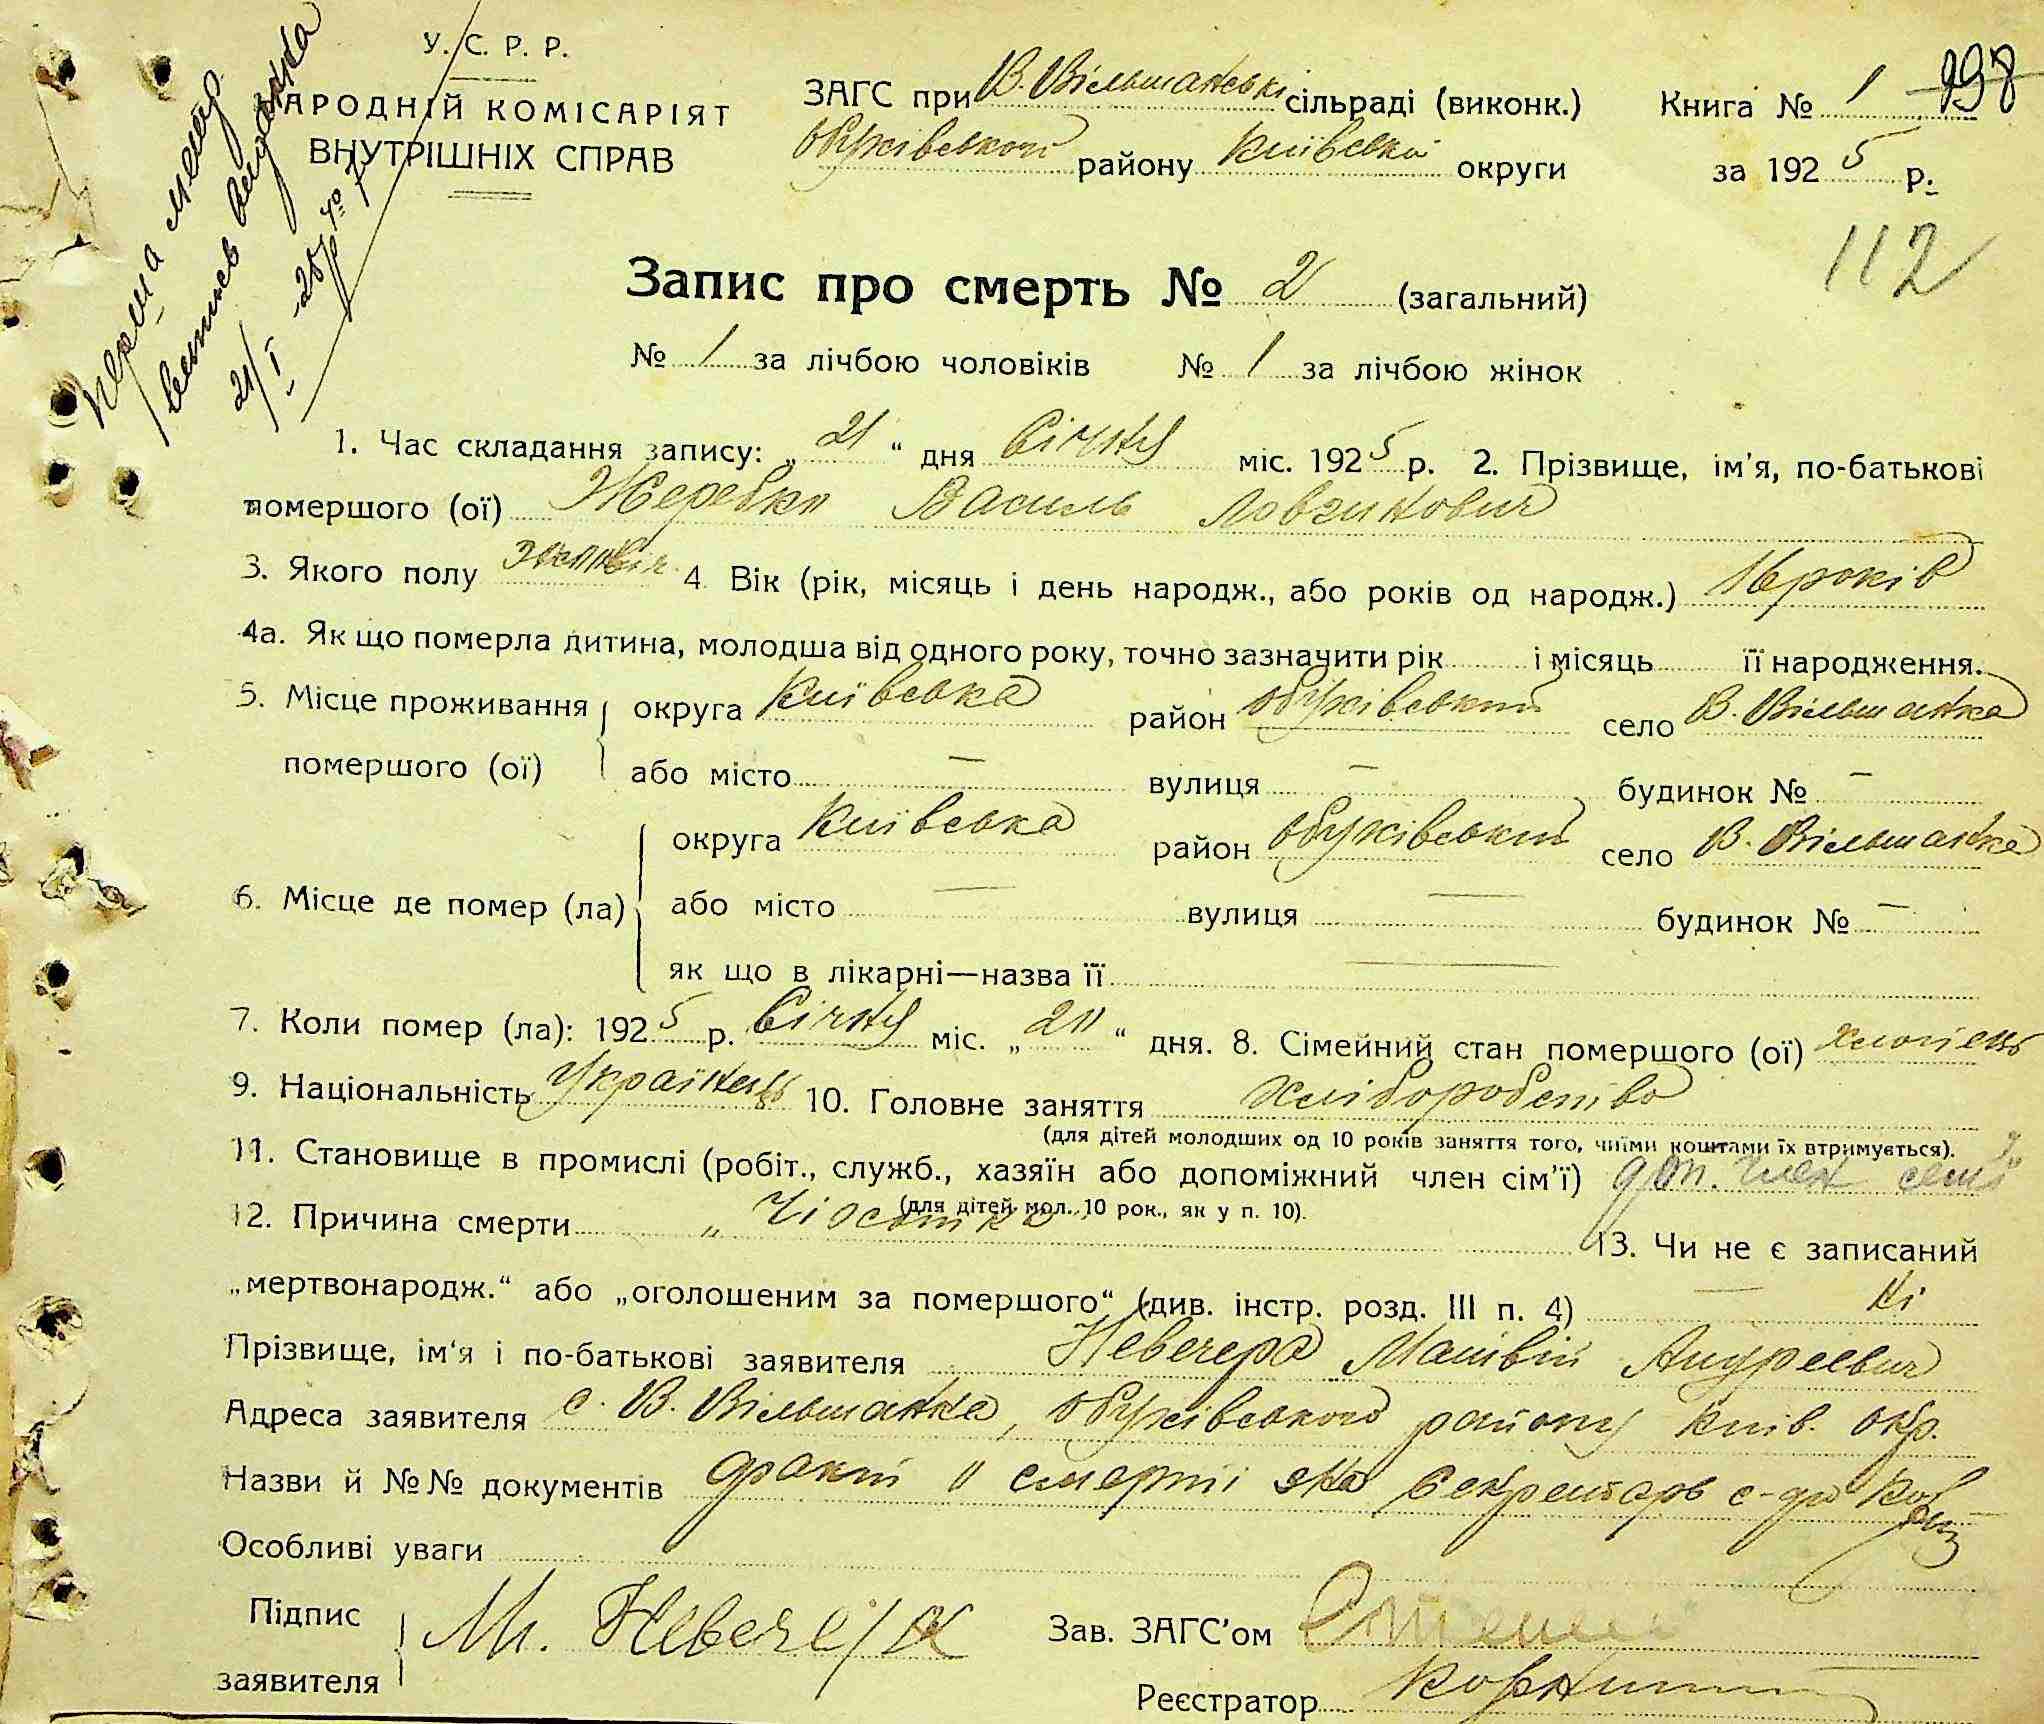 У. С. Р. Р.
НАРОДНІЙ КОМІСАРІЯТ
ВНУТРІШНІХ СПРАВ
ЗАГС при В. Вільшанські сільраді (виконк.)
Обухівського району Київської округи
Книга № 1 198
за 1925 р.
112
21/I -25 р.
Запис про смерть № 2 (загальний)
№ 1 за лічбою чоловіків № 1 за лічбою жінок
1. Час складання запису: „21“ дня Січня міс. 1925 р. 2. Прізвище, ім'я, по-батькові
помершого (ої) Жеребко Василь
3. Якого полу 4. Вік (рік, місяць і день народж., або років од народж.) 16 років
4а. Як що померла дитина, молодша від одного року, точно зазначити рік і місяць її народження.
5. Місце проживання помершого (ої) округа Київська район Обухівський село В. Вільшанка
або місто — вулиця — будинок № —
6. Місце де помер (ла) округа Київська район Обухівський село В. Вільшанка
або місто — вулиця — будинок № —
як що в лікарні—назва її —
7. Коли помер (ла): 1925 р. Січня міс. „ “ дня. 8. Сімейний стан помершого (ої) хлопець
9. Національність Українець 10. Головне заняття хліборобство
(для дітей молодших од 10 років заняття того, чиїми коштами їх втримується).
11. Становище в промислі (робіт., служб., хазяїн або допоміжний член сім'ї) доп. член сем'ї
(для дітей мол. 10 рок., як у п. 10).
12. Причина смерти 13. Чи не є записаний
„мертвонародж.“ або „оголошеним за помершого“ (див. інстр. розд. III п. 4) — Ні
Прізвище, ім'я і по-батькові заявителя Невечеря Матвій Андреевич
Адреса заявителя с. В. Вільшанка, Обухівського району Київ. окр.
Назви й №№ документів о смерті секретарь
Особливі уваги
Підпис заявителя М. Невечеря
Зав. ЗАГС'ом
Реєстратор